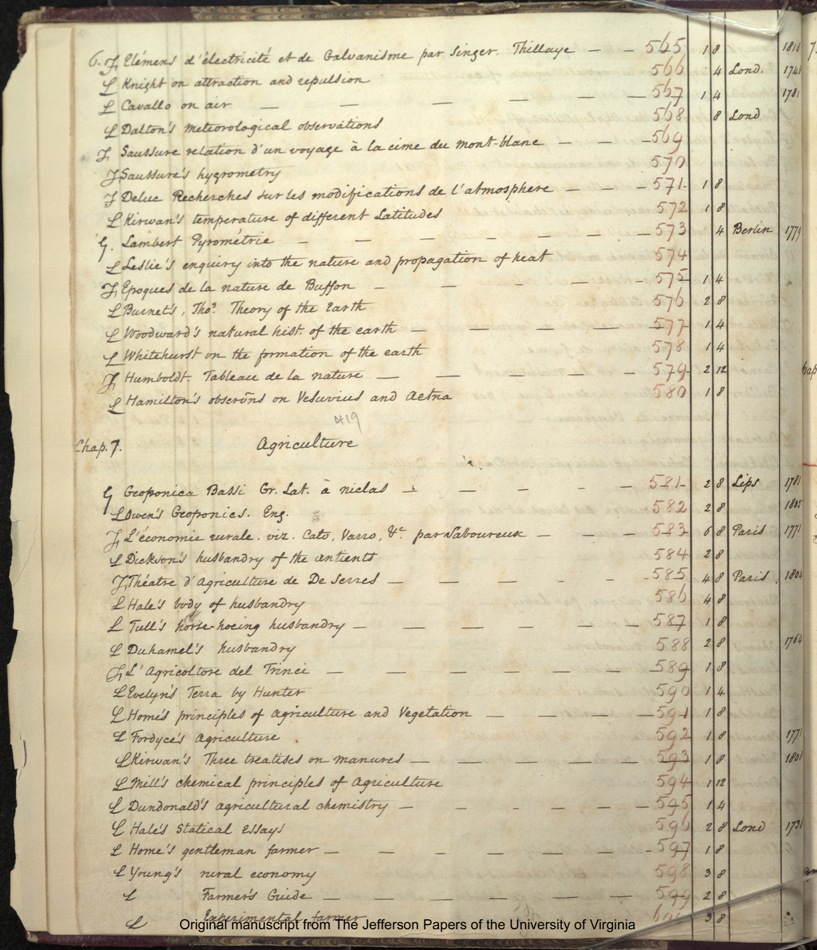 6. J Elémens d'électricité et de Galvanisme par Singer. Thillaye — — 565 1 8 1816
L Knight on attraction and repulsion 566 4 Lond. 1741
L Cavallo on air — — — — — 567 1 4 1781
L Dalton's meteorological observations 568 8 Lond
J Saussure relation d'un voyage à la cime du mont-blanc — — 569
J Saussure's hygrometry 570
J Deluc Recherches sur les modifications de l'atmosphere — — 571 1 8
L Kirwan's temperature of different Latitudes 572 1 8
G. Lambert Pyrométrie — — — — — — 573 4 Berlin 1779
L Leslie's enquiry into the nature and propagation of heat 574
J Epoques de la nature de Buffon — — — — — 575 1 4
L Burnet's, Thos. Theory of the Earth 576 2 8
L Woodward's natural hist. of the earth — — — — — 577 1 4
L Whitehurst on the formation of the earth 578 1 4
J Humboldt. Tableau de la nature — — — — — 579 2 12
L Hamilton's observns on Vesuvius and Aetna 580 1 8
419
Chap. 7. Agriculture
G Geoponica Bassi Gr. Lat. à niclas — — — — — 581 2 8 Lips 1781
L Owen's Geoponics. Eng. 582 2 8 1805
J L'économie rurale. viz. Cato, Varro, &c par Saboureux — — — 583 6 8 Paris 1771
L Dickson's husbandry of the antients 584 2 8
J Théatre d'Agriculture de De Serres — — — — — 585 4 8 Paris. 1804
L Hale's body of husbandry 586 4 8
L Tull's horse-hoeing husbandry — — — — — — 587 1 8
L Duhamel's husbandry 588 2 8 1764
J L'Agricoltore del Trinci — — — — — — 589 1 8
L Evelyn's Terra by Hunter 590 1 4
L Home's principles of agriculture and Vegetation — — — — 591 1 8
L Fordyce's Agriculture 592 1 8 1771
L Kirwan's Three treatises on manures — — — — — 593 1 8 1801
L Mill's chemical principles of Agriculture 594 1 12
L Dundonald's agricultural chemistry — — — — — 595 1 4
L Hale's Statical Essays 596 2 8 Lond 1731
L Home's gentleman farmer — — — — — — 597 1 8
L Young's rural economy 598 3 8
L Farmer's Guide — — — — — — 599 2 8
L Experimental farmer 600 3 8
Original manuscript from The Jefferson Papers of the University of Virginia